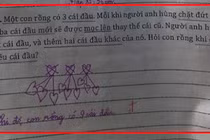 1. Một con rồng có 3 cái đầu. Mỗi khi người anh hùng chặt đứt
ba cái đầu một sẽ được mọc lên thay thế cái cũ. Người anh h
cái đầu, và thêm hai cái đầu khác của nó. Hỏi con rồng khi
êu cái đầu?
con rồng có 9